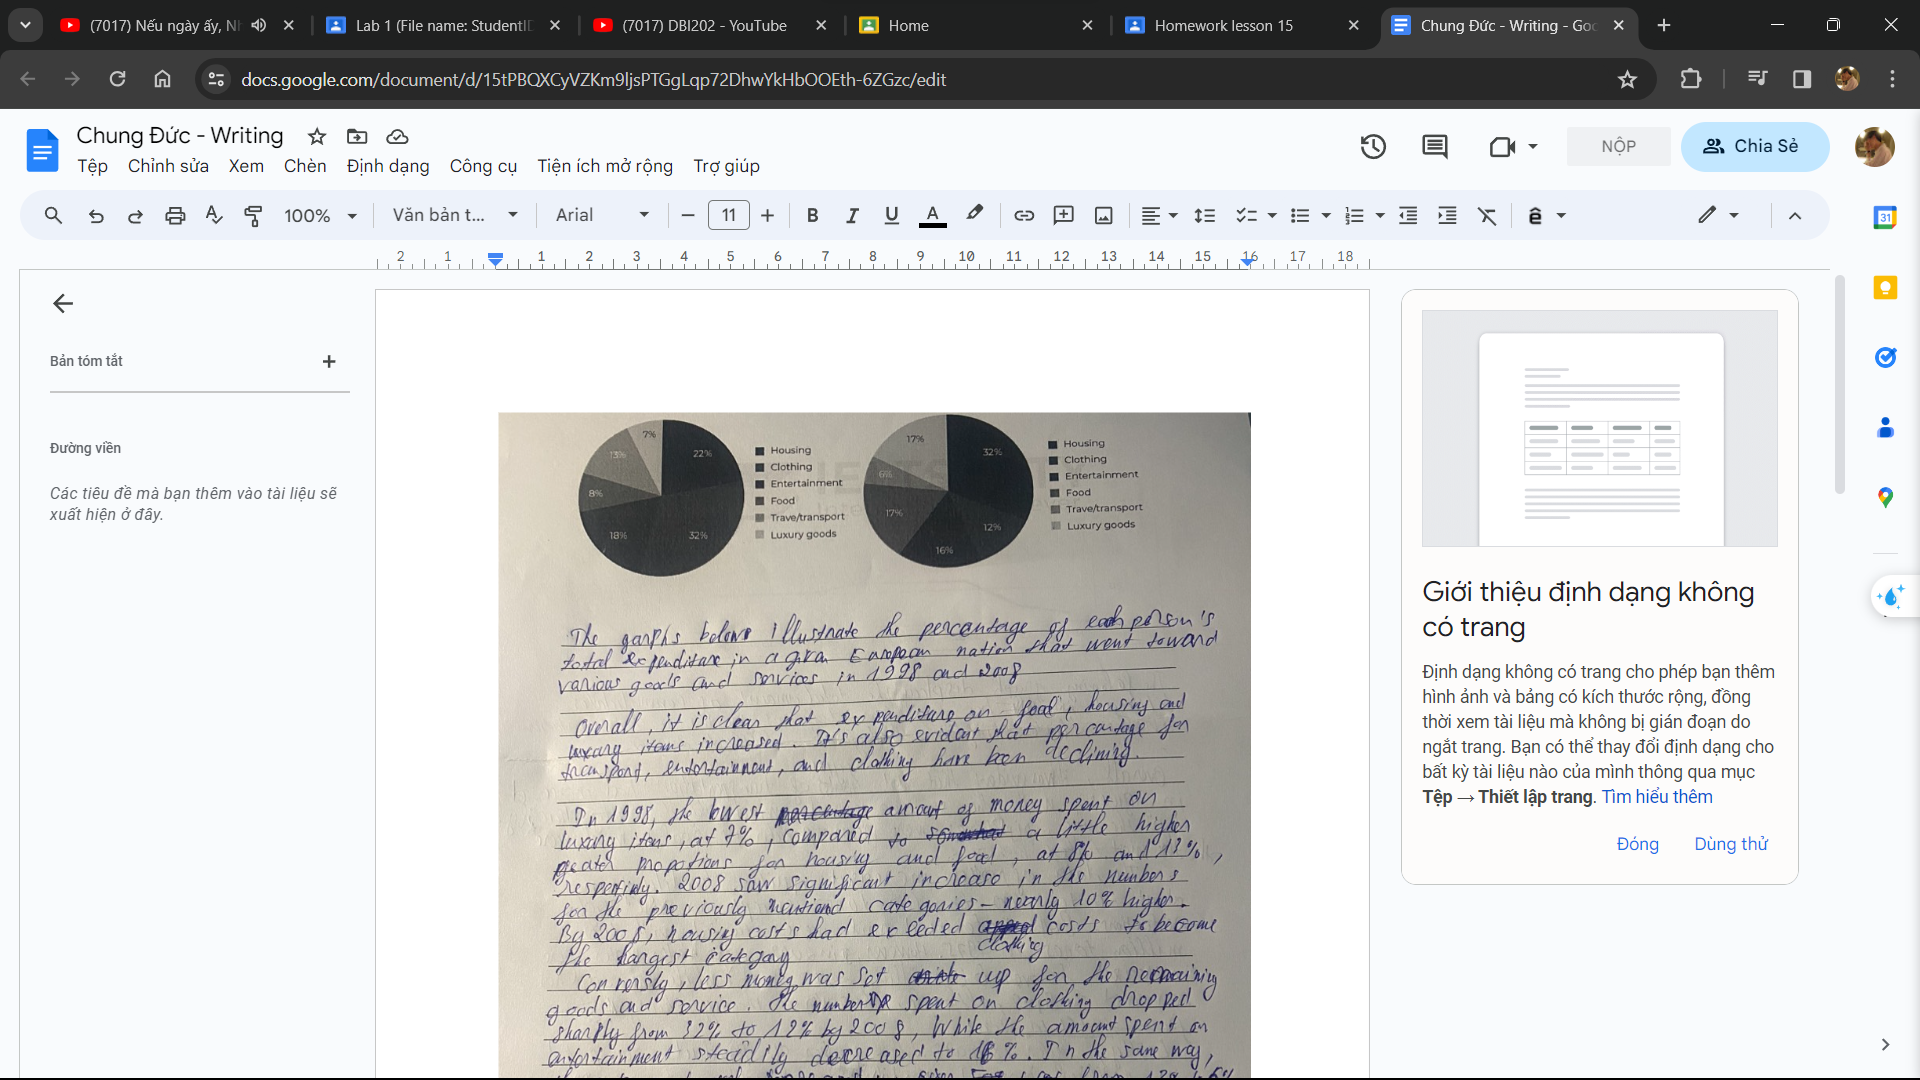 (7017) Nếu ngày ấy, Nh
Lab 1 (File name: StudentID
(7017) DBI202 - YouTube
Home
Homework lesson 15
Chung Đức - Writing - Goo
docs.google.com/document/d/15tPBQXCyVZKm9ljsPTGgLqp72DhwYkHbOOEth-6ZGzc/edit
Chung Đức - Writing
Tệp Chỉnh sửa Xem Chèn Định dạng Công cụ Tiện ích mở rộng Trợ giúp
NỘP
Chia Sẻ
100% Văn bản t... Arial 11
2 1 1 2 3 4 5 6 7 8 9 10 11 12 13 14 15 16 17 18
Bản tóm tắt
Đường viền
Các tiêu đề mà bạn thêm vào tài liệu sẽ
xuất hiện ở đây.
7%
22%
13%
8%
18%
32%
Housing
Clothing
Entertainment
Food
Trave/transport
Luxury goods
17%
32%
6%
17%
12%
16%
Housing
Clothing
Entertainment
Food
Trave/transport
Luxury goods
The garphs belows illustrate the percentage of each person's
total expenditure in a given European nation that went toward
various goods and services in 1998 and 2008
Overall, it is clear that expenditure on food, housing and
luxury items increased. It's also evident that percentage for
transport, entertainment, and clothing have been declining.
In 1998, the lowest amount of money spent on
luxury items, at 7%, compared to a little higher
greater propotions for housing and food, at 8% and 13%,
2008 saw significant increase in the numbers
for the previously mentiond categories - nearly 10% higher.
By 2008, housing costs had exceeded clothing costs to become
the largest category
Conversly, less money was set up for the remaining
goods and service. The number spent on clothing dropped
sharply from 32% to 12% by 2008, while the amount spent on
entertainment steadily decreased to 16%. In the same way,
Giới thiệu định dạng không
có trang
Định dạng không có trang cho phép bạn thêm
hình ảnh và bảng có kích thước rộng, đồng
thời xem tài liệu mà không bị gián đoạn do
ngắt trang. Bạn có thể thay đổi định dạng cho
bất kỳ tài liệu nào của mình thông qua mục
Tệp → Thiết lập trang. Tìm hiểu thêm
Đóng Dùng thử
31